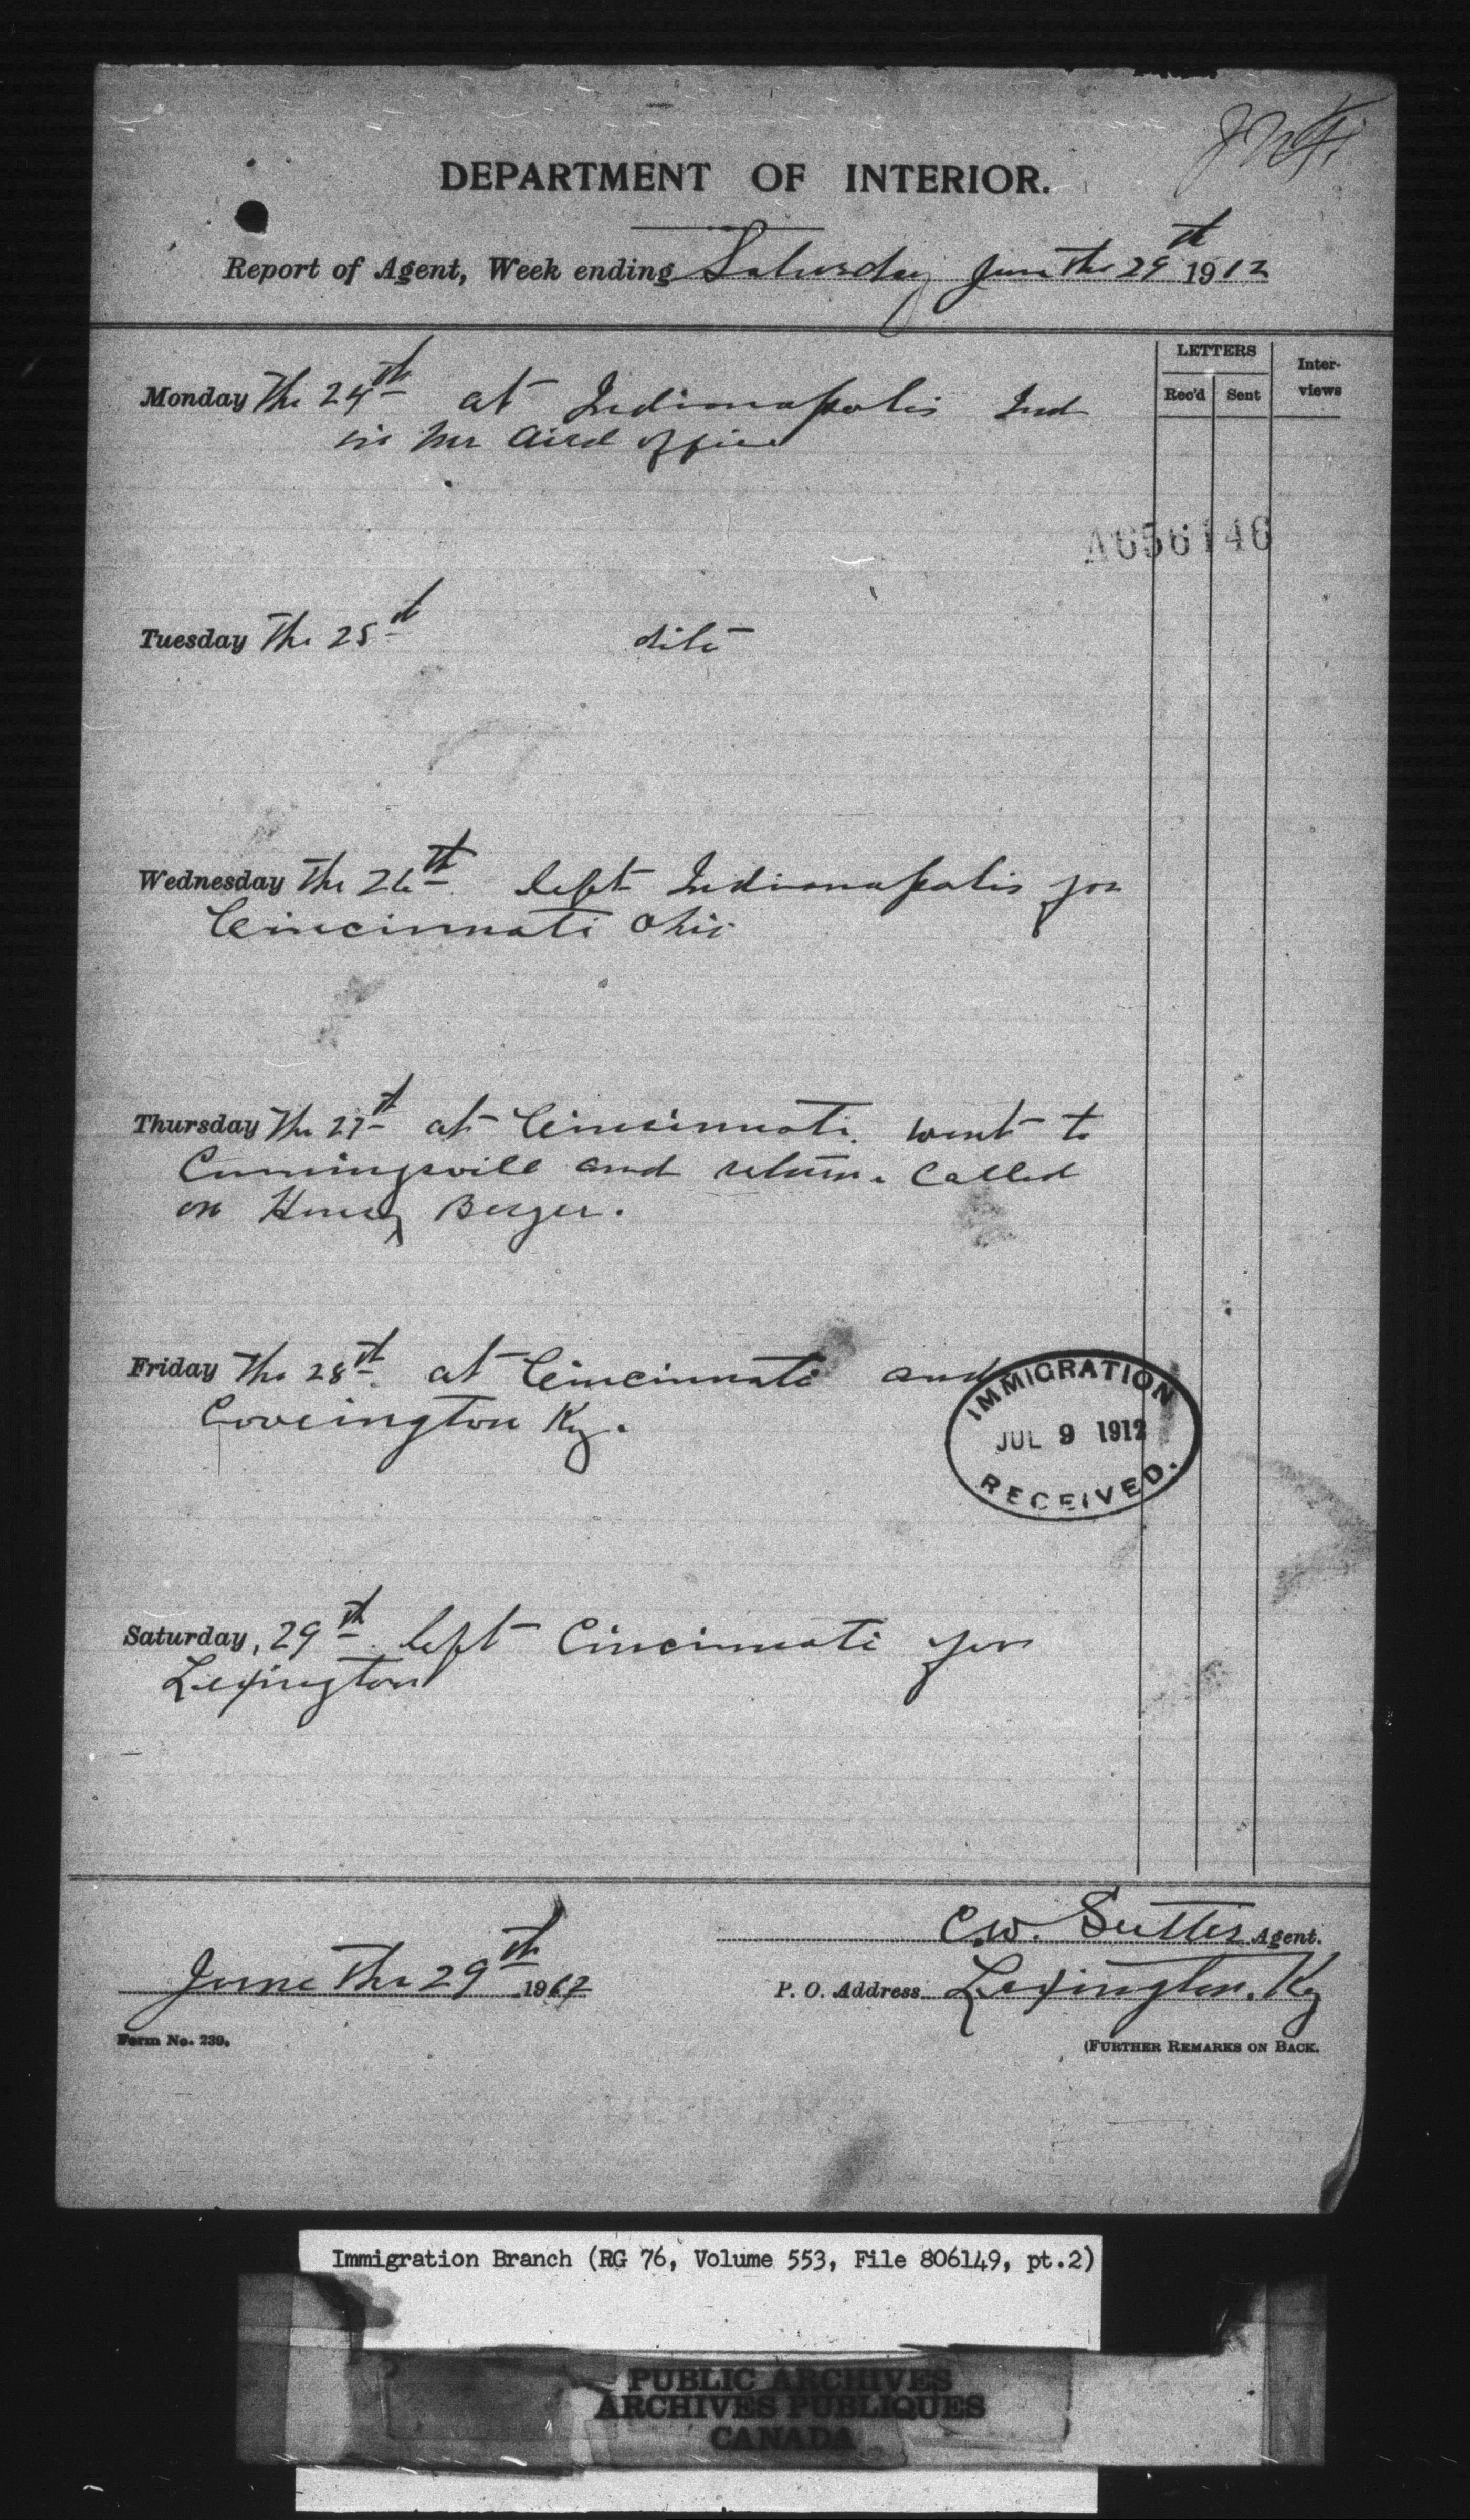 DEPARTMENT OF INTERIOR.
Report of Agent, Week ending Saturday June the 29th 1912
LETTERS
Rec'd Sent
Inter-
views
Monday The 24th at Indianapolis Ind
in Mr Aird office
A656146
Tuesday The 25th dito
Wednesday The 26th left Indianapolis for
Cincinnati Ohio
Thursday The 27th at Cincinnati. went to
Cumingsvill and return. Called
on Henry Berger.
Friday The 28th at Cincinnati and
Covington Ky.
IMMIGRATION
JUL 9 1912
RECEIVED.
Saturday, 29th left Cincinnati for
Lexington
C.W. Sutter Agent.
June The 29th 1912
P. O. Address Lexington. Ky
Form No. 239.
(FURTHER REMARKS ON BACK.
Immigration Branch (RG 76, Volume 553, File 806149, pt.2)
PUBLIC ARCHIVES
ARCHIVES PUBLIQUES
CANADA